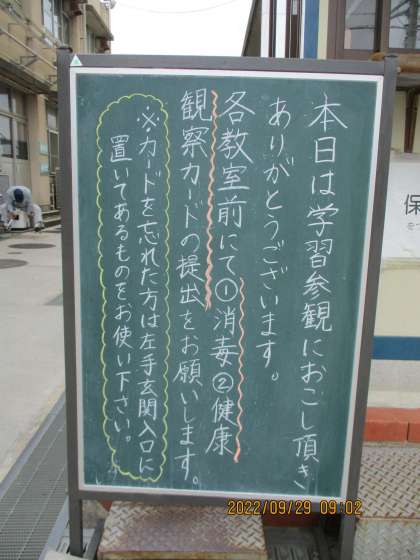 本日は学習参観におこし頂き
ありがとうございます。
各教室前にて①消毒②健康
観察カードの提出をお願いします。
※カードを忘れた方は左手玄関入口に
置いてあるものをお使い下さい。
保
2022/09/29 09:02